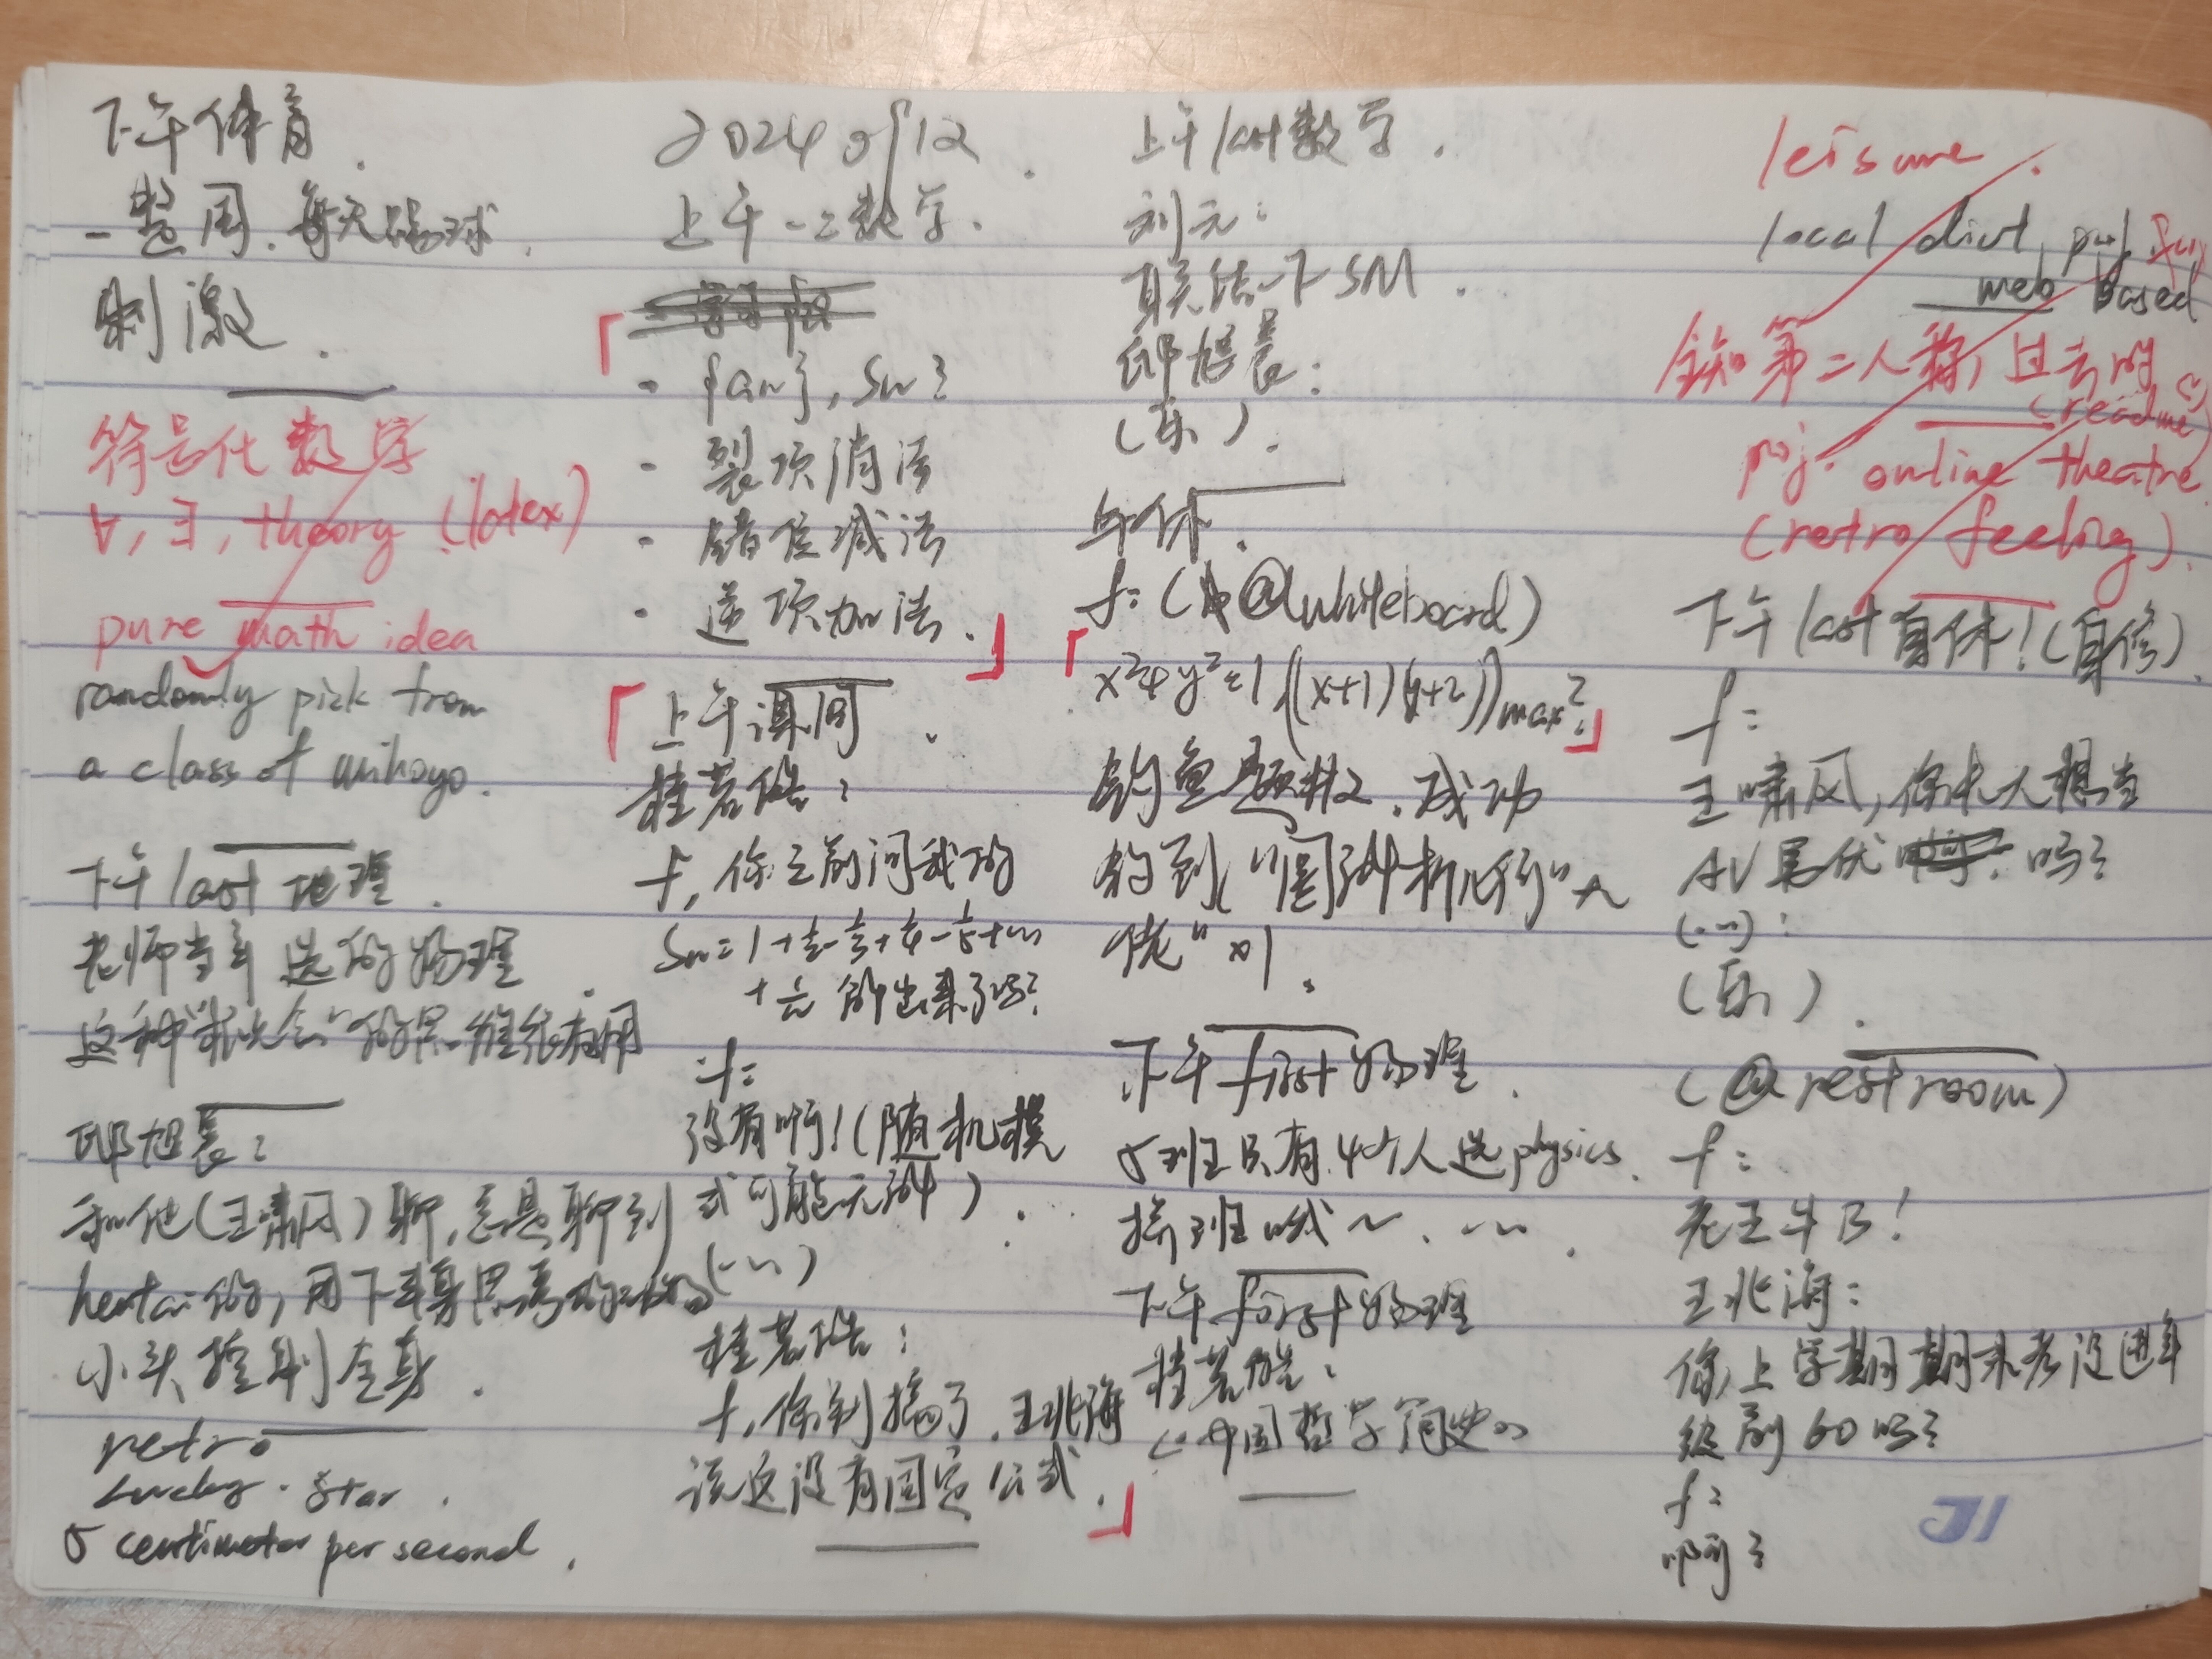 下午体育.
一整周.每天踢球.
刺激.
符号化数学
∀,∃,theory (latex)
pure math idea
randomly pick from
a class of mihoyo.
下午last地理.
老师当年选的物理.
这种"状元会"的思维很有用
邱旭晨:
和他(王啸风)聊,总是聊到
hentai的,用下半身思考的动物
小头控制全身.
retro
Lucky·Star.
5 centimeter per second.
2024 9/12.
上午一二数学.
「
· {an},Sn?
· 裂项消法
· 错位减法
· 逐项加法.」
「上午课间.
桂若皓:
f,你之前问我的
Sn=1+½-⅓+¼-⅕+…
+ 1/n 解出来了吗?
f:
没有啊!(随机模
式可能无解).
(…)
桂若皓:
f,你别搞了.王兆海
说这没有固定公式.」
上午last数学.
刘元:
总结一下SM.
邱旭晨:
(乐).
午休.
f:(@whiteboard)
「x²+y²=1,((x+1)(y+2))max?」
钓鱼题材.成功
钓到"圆锥析几何"大
佬"x1.
下午first物理.
5班只有4个人选physics.
拆班哦~.….
下午first物理
桂若皓:
《中国哲学简史》
leisure.
local dict pwj
web based
全知第二人称,过去时
(readme)
proj. online theatre
(retro feeling).
下午last自休!(自修).
f:
王啸风,你长大想当
AV男优吗?
(…):
(乐).
(@restroom)
f:
老王牛B!
王兆海:
你上学期期末考没进年
级前60吗?
f:
啊?
JI